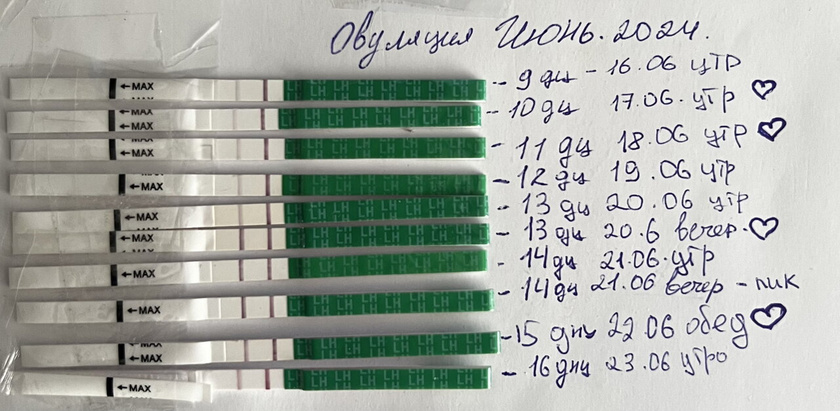 Овуляция Июнь. 2024.
←MAX LH LH LH LH LH LH LH - 9 дц - 16.06 утр
←MAX LH LH LH LH LH LH LH - 10 дц 17.06. утр ♡
←MAX LH LH LH LH LH LH LH - 11 дц 18.06 утр ♡
←MAX LH LH LH LH LH LH LH - 12 дц 19.06 утр
←MAX LH LH LH LH LH LH LH - 13 дц 20.06 утр
←MAX LH LH LH LH LH LH LH - 13 дц 20.6 вечер. ♡
←MAX LH LH LH LH LH LH LH - 14 дц 21.06. утр
←MAX LH LH LH LH LH LH LH - 14 дц 21.06 вечер - пик
←MAX LH LH LH LH LH LH LH - 15 днц 22.06 обед ♡
←MAX LH LH LH LH LH LH LH - 16 днц 23.06 утро